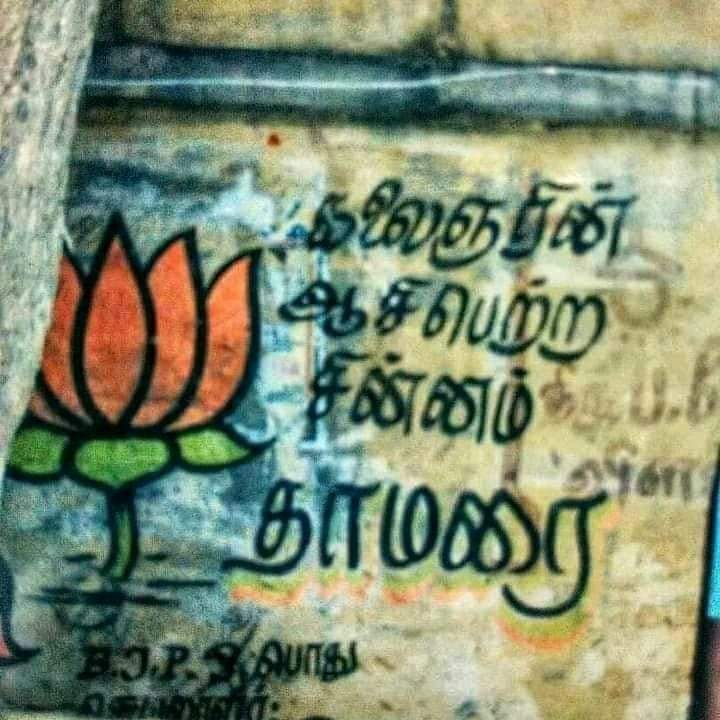 கலைஞரின்
ஆசிபெற்ற
சின்னம்
தாமரை
B.J.P. பொது